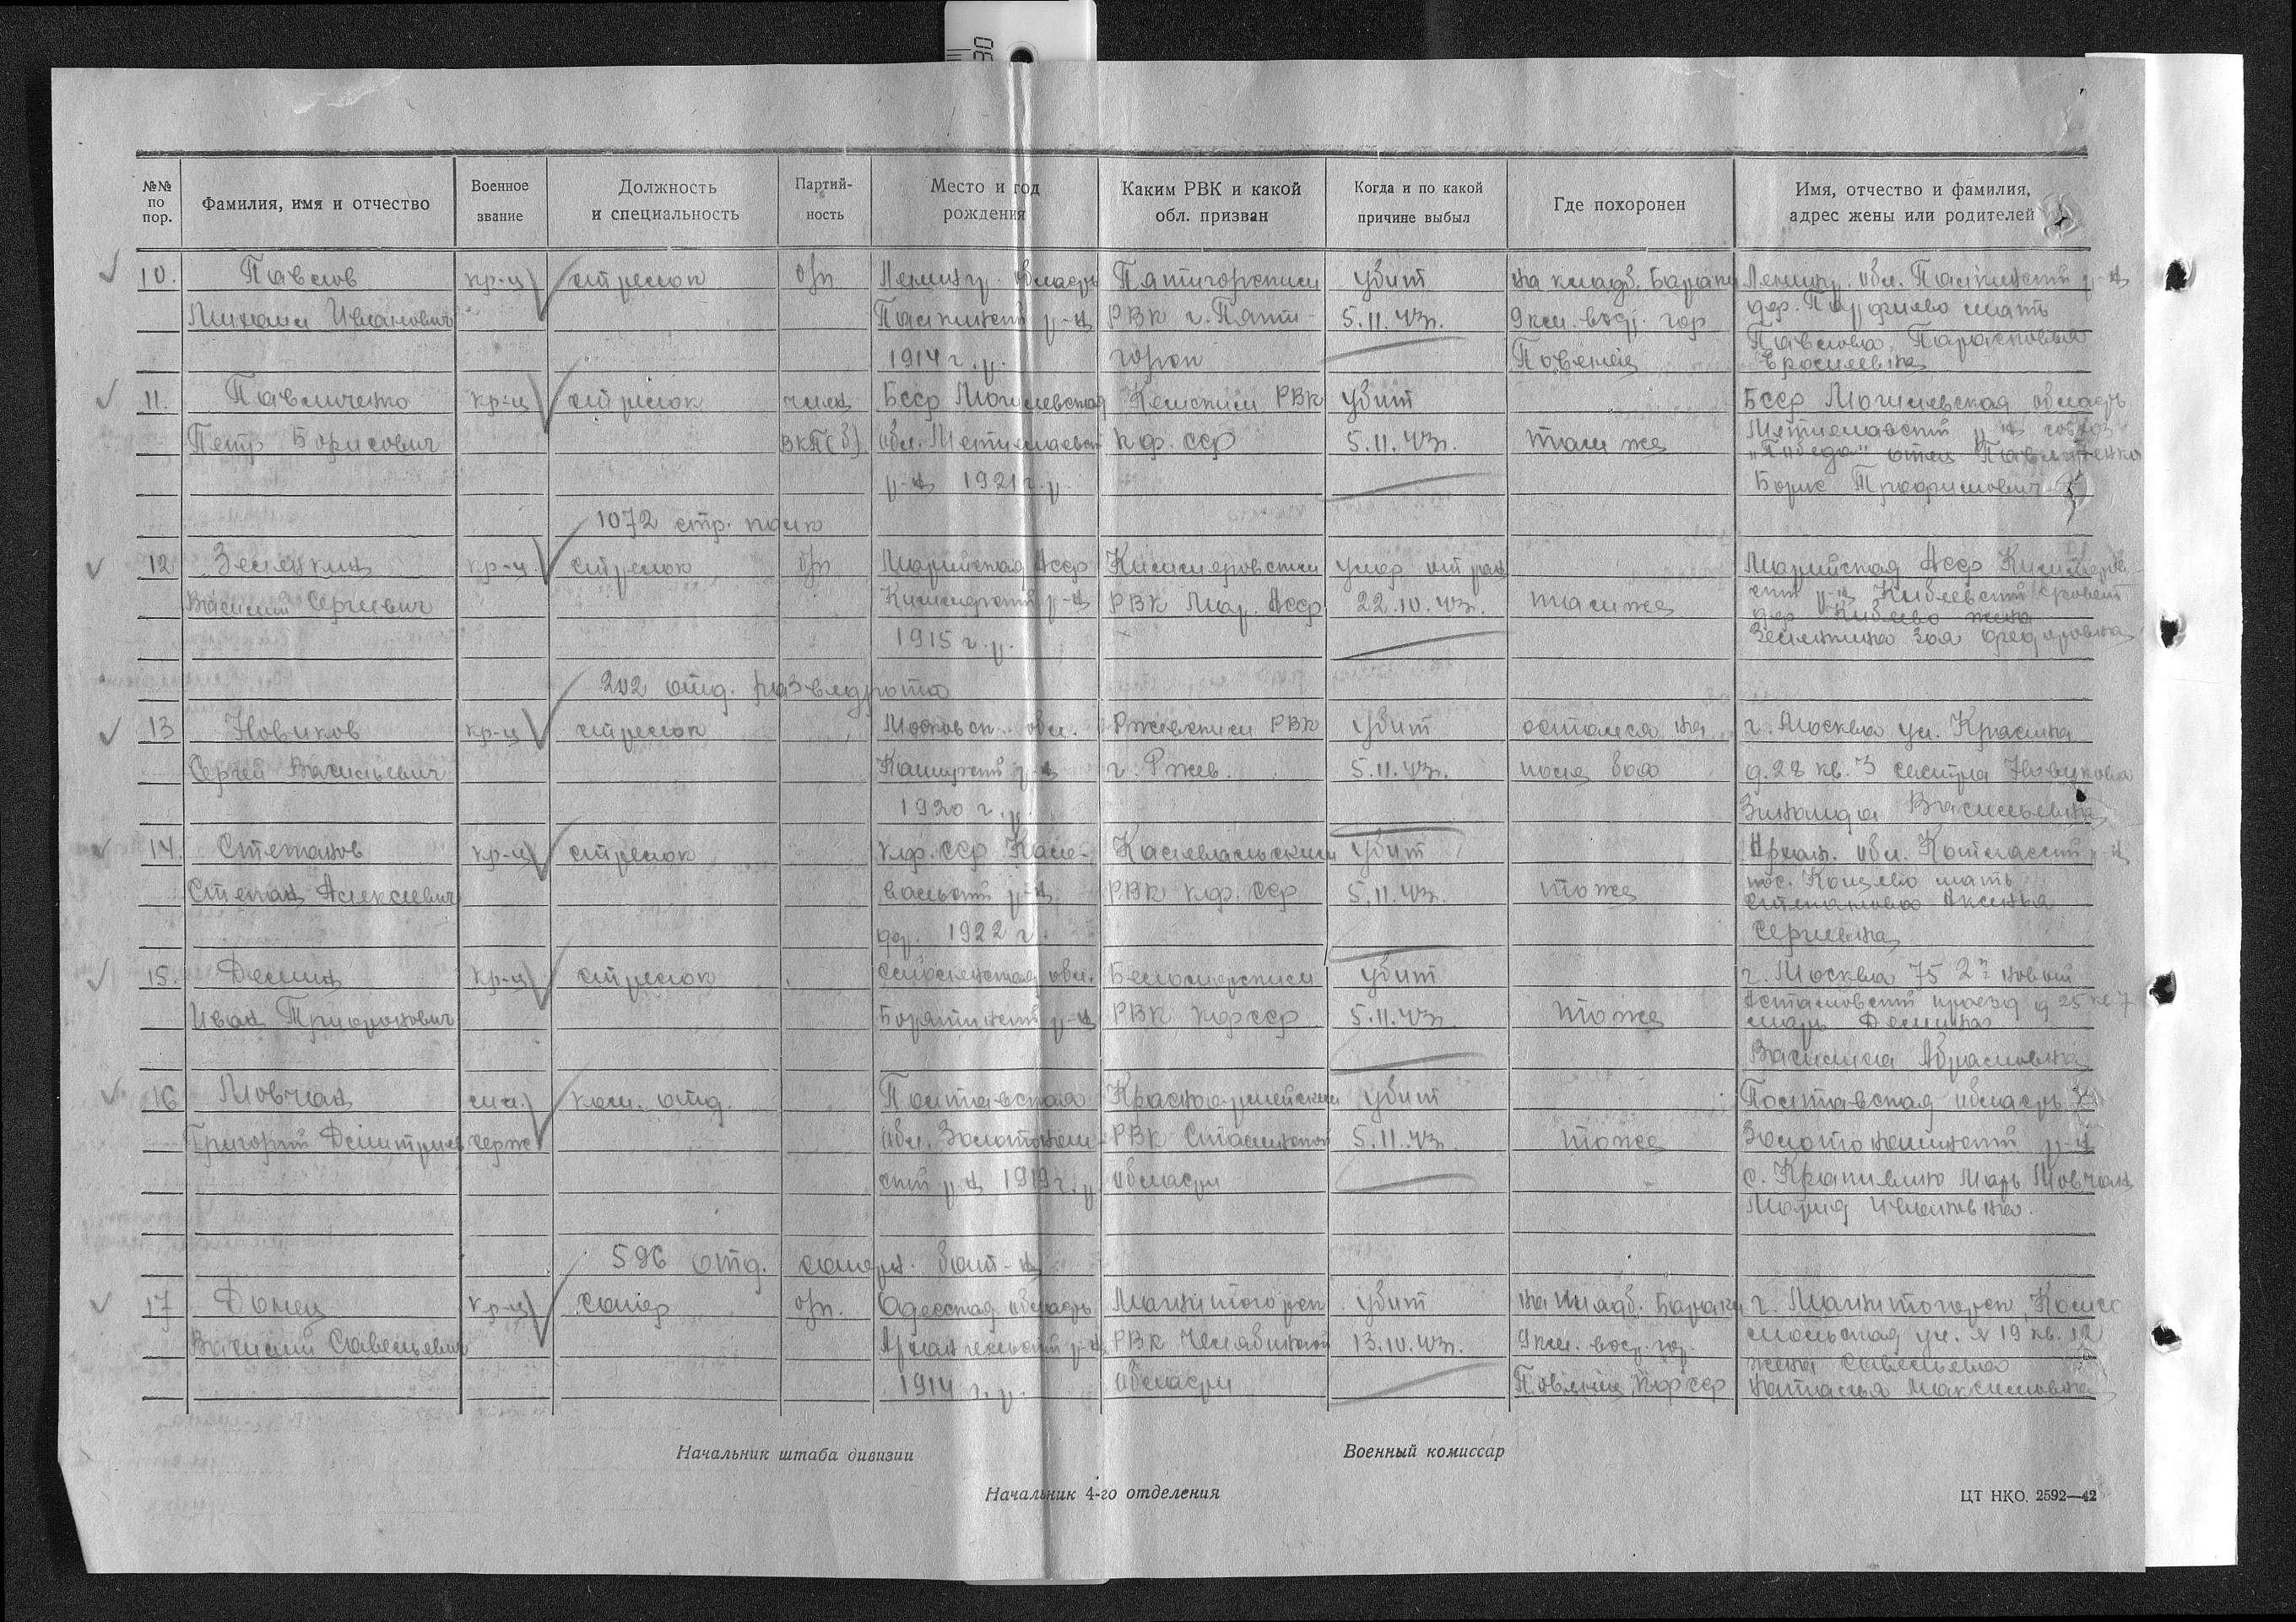 №№ по пор.
Фамилия, имя и отчество
Военное звание
Должность и специальность
Партий-ность
Место и год рождения
Каким РВК и какой обл. призван
Когда и по какой причине выбыл
Где похоронен
Имя, отчество и фамилия, адрес жены или родителей
10. Павлов кр-ц стрелок б/п Ленингр. область Пятигорским убит на кладб. Баранд Ленингр. обл.
Михаил Иванович РВК г. Пяти- 5.11.43г. 9 км. вост. гор мать
1914 г.р. горск Повенец Павлова Парасковья
11. Павличенко кр-ц стрелок член БССР Могилевская Кемским РВК убит БССР Могилевская область
Петр Борисович ВКП(б) обл. Мстиславск кф. сср 5.11.43г. там же Мстиславский р-н совхоз
р-н 1921 г.р. "Победа" отец Павличенко
Борис Трофимович
1072 стр. полк
12 Земенкин кр-ц стрелок б/п Марийская Асср умер от ран Марийская Асср
Василий Сергеевич р-н РВК Мар. Асср 22.10.43г. там же
1915 г.р. жена
Зоя Федоровна
202 отд. разведрота
13 Новиков кр-ц стрелок Московск. обл. Ржевским РВК убит остался на г. Москва ул. Красина
Сергей Васильевич р-н г. Ржев. 5.11.43г. поле боя д. 28 кв. 3 сестра Новикова
1920 г.р. Зинаида Васильевна
14. Степанов кр-ц стрелок кф. сср Кале- Калевальским убит Арханг. обл. Котласский р-н
Степан Алексеевич вальский р-н РВК кф. сср 5.11.43г. тоже мать
дер. 1922 г. Степанова Аксинья
Сергеевна
15. Демин кр-ц стрелок Смоленская обл. Беломорским убит г. Москва 75 2й новый
Иван Трифонович р-н РВК кфсср 5.11.43г. тоже проезд д 25 кв 7
мать Демина
Василиса Абрамовна
16 Мовчан мл. ком. отд. Полтавская Красноармейским убит Полтавская область
Григорий Дмитриев серж. обл. Золотонош- РВК Сталинской 5.11.43г. тоже Золотоношский р-н
ский р-н 1919 г.р. области с. мать Мовчан
Мария Ивановна.
596 отд. саперн. бат-н
17 Донец кр-ц сапер б/п. Одесская область Магнитогорск убит на кладб. Баранд г. Магнитогорск, Комсо
Василий Савельевич р-н РВК Челябинской 13.10.43г. 9 км. вост. гор. мольская ул. № 19 кв. 12
1914 г.р. области Повенец кфсср жена Савельева
Наталья Максимовна
Начальник штаба дивизии
Военный комиссар
Начальник 4-го отделения
ЦТ НКО. 2592—42